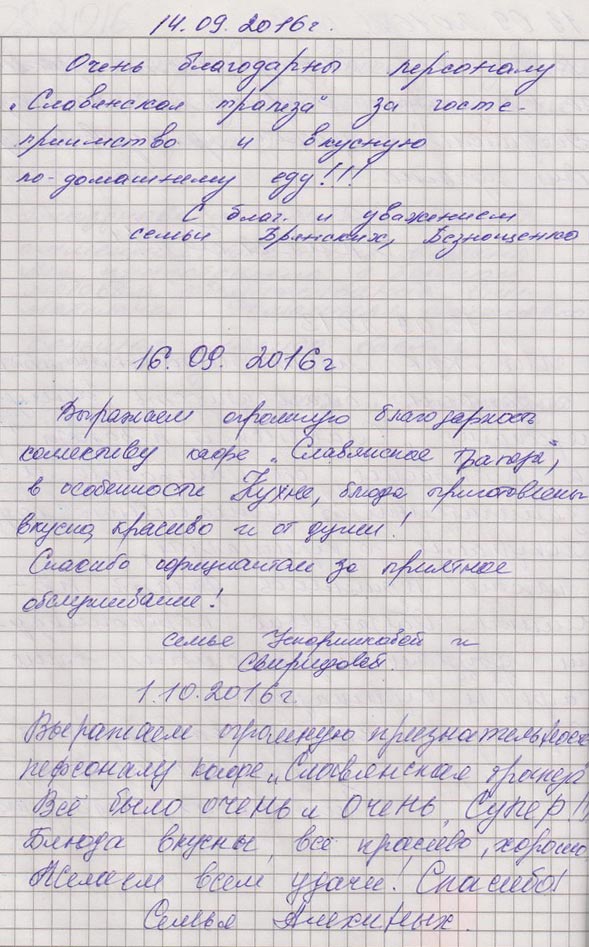 14.09.2016г.
Очень благодарны персоналу
„Славянская трапеза" за госте-
приимство и вкусную
по-домашнему еду!!!
С благ. и уважением
семьи Брянских, Безнощенко
16.09.2016г
Выражаем огромную благодарность
коллективу кафе „Славянское трапеза",
в особенности Кухне, блюда приготовлены
вкусно, красиво и от души!
Спасибо официантам за приятное
обслуживание!
семье и
Свиридовой.
1.10.2016г.
Выражаем огромную признательность
персоналу кафе „Славянская трапеза"
Всё было очень и очень Супер!!
Блюда вкусны, всё красиво, хорошо
Желаем всем удачи! Спасибо!
Семья Алехиных.